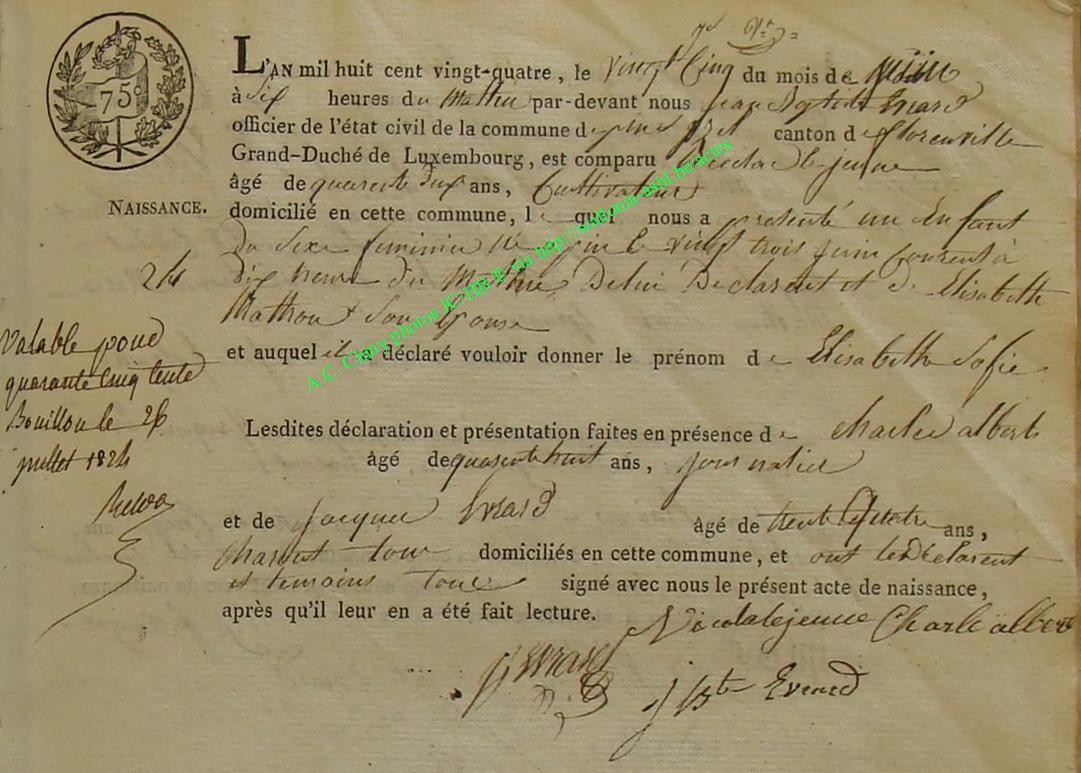 75c
NAISSANCE.
L'AN mil huit cent vingt-quatre, le vingt Cinq du mois de juin
à dix heures du Mattin par-devant nous jean Baptiste Evrard
officier de l'état civil de la commune de canton de florenville
Grand-Duché de Luxembourg, est comparu Nicola le jeune
âgé de quarente dux ans, Cultivateur
domicilié en cette commune, le quel nous a presenté un Enfant
du Sexe feminin né le vingt trois juin courent à
dix heure du Mattin De lui Declarent et de Elisabeth
Mathon Son Epouse
et auquel il a déclaré vouloir donner le prénom de Elisabeth Sofie
Lesdites déclaration et présentation faites en présence de charle albert
âgé de quarente huit ans, journalier
et de jacque Evrard âgé de trente quatre ans,
domiciliés en cette commune, et ont le Declarent
et temoins tous signé avec nous le présent acte de naissance,
après qu'il leur en a été fait lecture.
Nicola lejeune Charle albert
j Evrard
j Bte Evrard
Valable pour
quarante cinq cents
Bouillon le 26
juillet 1824
A.C. Chiny photos via http://wallonia-asbl.be/actes